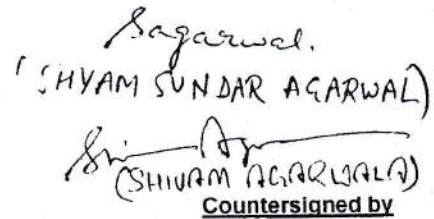 Sagarwal.
(SHYAM SUNDAR AGARWAL)
(SHIVAM AGARWALA)
Countersigned by